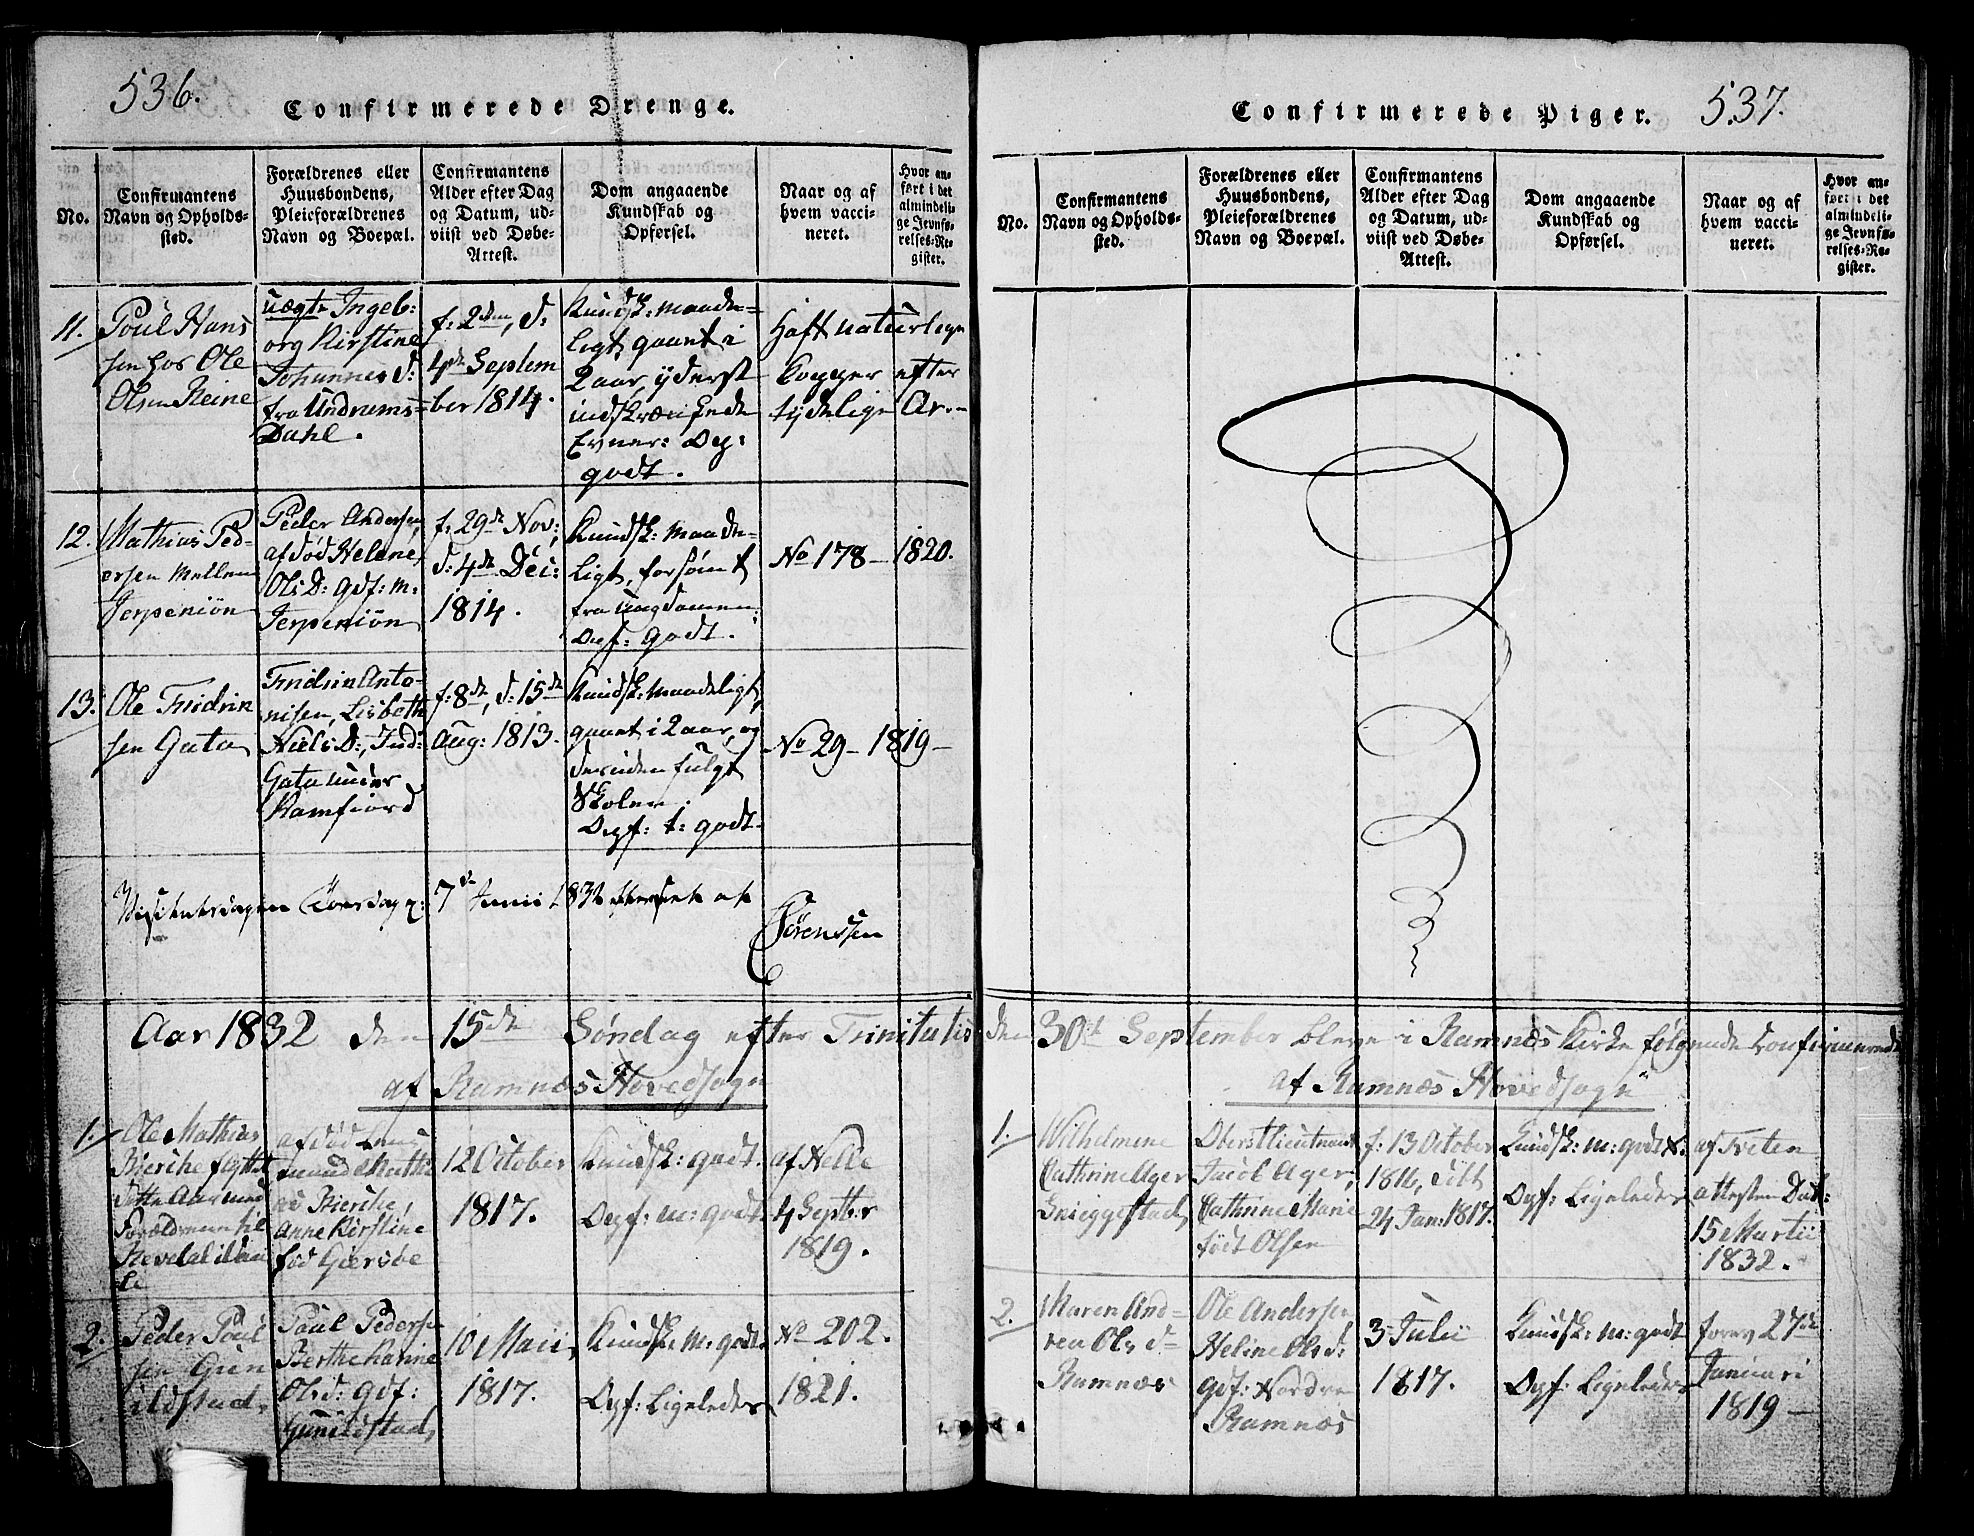 536.
Confirmerede Drenge.
No.
Confirmantens
Navn og Opholds-
sted.
Forældrenes eller
Huusbondens,
Pleieforældrenes
Navn og Boepæl.
Confirmantens
Alder efter Dag
og Datum, ud-
viist ved Døbe-
Attest.
Dom angaaende
Kundskab og
Opførsel.
Naar og af
hvem vacci-
neret.
Hvor an-
ført i det
almindeli-
ge Jevnfø-
relses-Re-
gister.
11.
Poul Hans
sen hos Ole
Olsen Reine
uægte Ingeb:
org Kirstine
Johannesd:
fra Undrums=
Dahl.
f: 2den, d:
4de Septem
ber 1814.
Kundsk: maade-
ligt, gaaet i
2 aar, yderst
indskrænkede
Evner: Op:
godt.
Haft naturlige
Kopper efter
tydelige Ar.-
12.
Mathias Ped-
ersen Mellem
Jerpeniøn
Peder Andersen,
afdød Helene
OlsD: gdf: M:
Jerpeniøn
f: 29de Nov:
d: 4de Dec:
1814.
Kundsk: maade-
ligt, forsømt
fra Ungdommen:
Opf: godt.
No 178 - 1820.
13.
Ole Fridrin
sen Gata
Fridrin Anto-
nisen, Lisbeth
NielsD:, Ind:
Gata under
Ramfiord
f: 8de, d: 15de
Aug: 1813.
Kundsk: maadeligt,
gaaet i 2 aar, og
desuden fulgt
Skolen.
Opf: t: godt.
No 29 - 1819 -
Visitatsdagen Torsdag 7de Junii 1832
Sørenssen
Aar 1832 den 15de Søndag efter Trinitatis
af Ramnæs Hovedsogn
1.
Ole Mathias
Bierche flyttet
dette Aar med
Forældrene til
Revedal
afdød
Bierche,
Anne Kirstine
fød Giersøe
12 October
1817.
Kundsk: godt.
Opf: m: godt.
af Nelle
4 Septbr
1819.
2.
Peder Poul
sen Gun
ildstad,
Poul Pedersen
Berthe Karine
Olsd: Gdf:
Gunildstad,
10 Maii,
1817.
Kundsk: m: godt.
Opf: Ligeledes
No 202.
1821.
Confirmerede Piger.
537.
No.
Confirmantens
Navn og Opholds-
sted.
Forældrenes eller
Huusbondens,
Pleieforældrenes
Navn og Boepæl.
Confirmantens
Alder efter Dag
og Datum, ud-
viist ved Døbe-
Attest.
Dom angaaende
Kundskab og
Opførsel.
Naar og af
hvem vacci-
neret.
Hvor an-
ført i det
almindeli-
ge Jevnfø-
relses-Re-
gister.
den 30te September bleve i Ramnæs Kirke følgende Confirmerede
af Ramnæs Hovedsogn
1.
Wilhelmine
Cathrine Ager
Sneggestad,
Oberstlieutnant
Jacob Ager,
Cathrine Marie
født Olsen
f: 13 October
1816, døbt
24 Jan: 1817.
Kundsk: m: godt.
Opf: Ligeledes
af Tveten
attesten Dat:
15 Martii
1832.
2.
Maren And-
rea Olsd=
Ramnæs
Ole Andersen,
Heline Olsd:
gdf: Nordre
Ramnæs
3 Julii
1817.
Kundsk: m: godt
Opf: Ligeledes
27de
Januari
1819 -